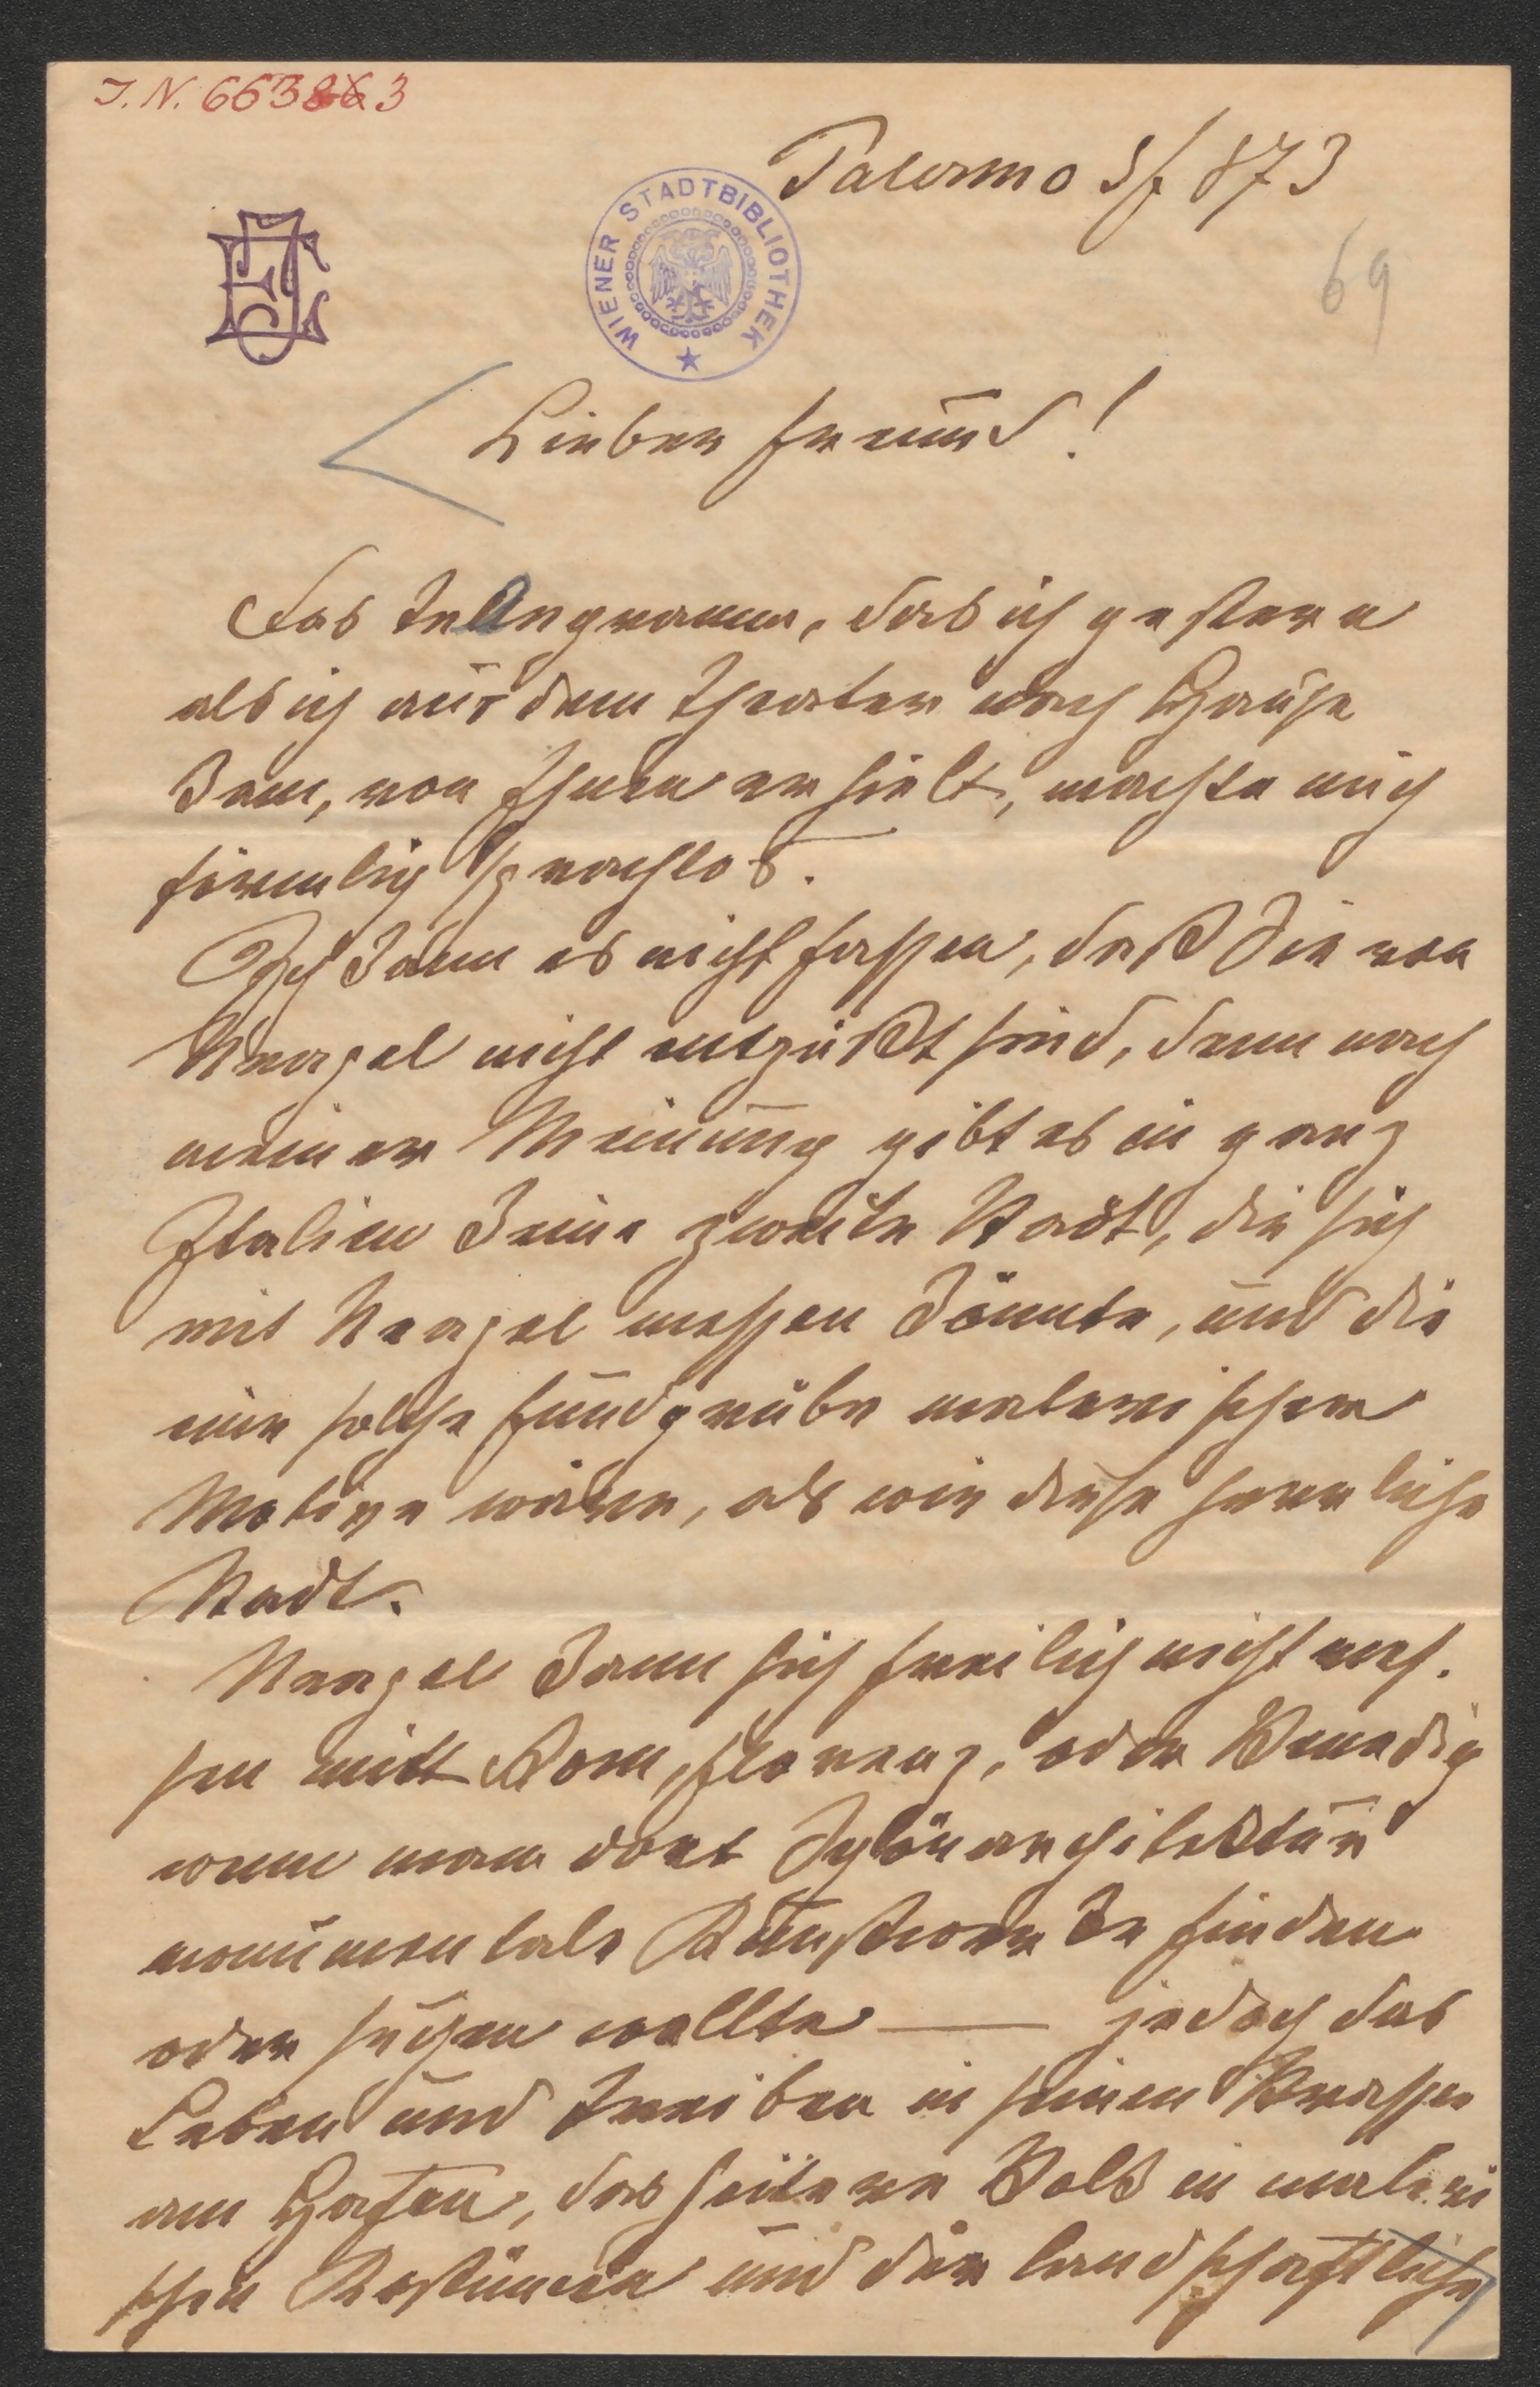 I. N. 663863
Palermo 3/ 873
WIENER STADTBIBLIOTHEK
69
Lieber Freund!
Das Telegramm, das ich gestern
als ich aus dem Theater nach Hause
kam, von Ihnen erhielt, machte mich
förmlich sprachlos.
Ich kann es nicht fassen, daß Sie von
Neapel nicht entzückt sind, denn nach
meiner Meinung gibt es in ganz
Italien keine zweite Stadt, die sich
mit Neapel messen könnte, und die
eine solche Fundgrube malerischer
Motive wäre, als wie diese herrliche
Stadt.
Neapel kann sich freilich nicht mes-
sen mitt Rom, Florenz, oder Venedig
wenn man dort Stylarchitektur
monumentale Kunstwerke finden
oder suchen wollte — jedoch das
Leben und Treiben in seinen Strassen
am Hafen, das heitere Volk in maleri
schen Kostümen und der landschaftliche